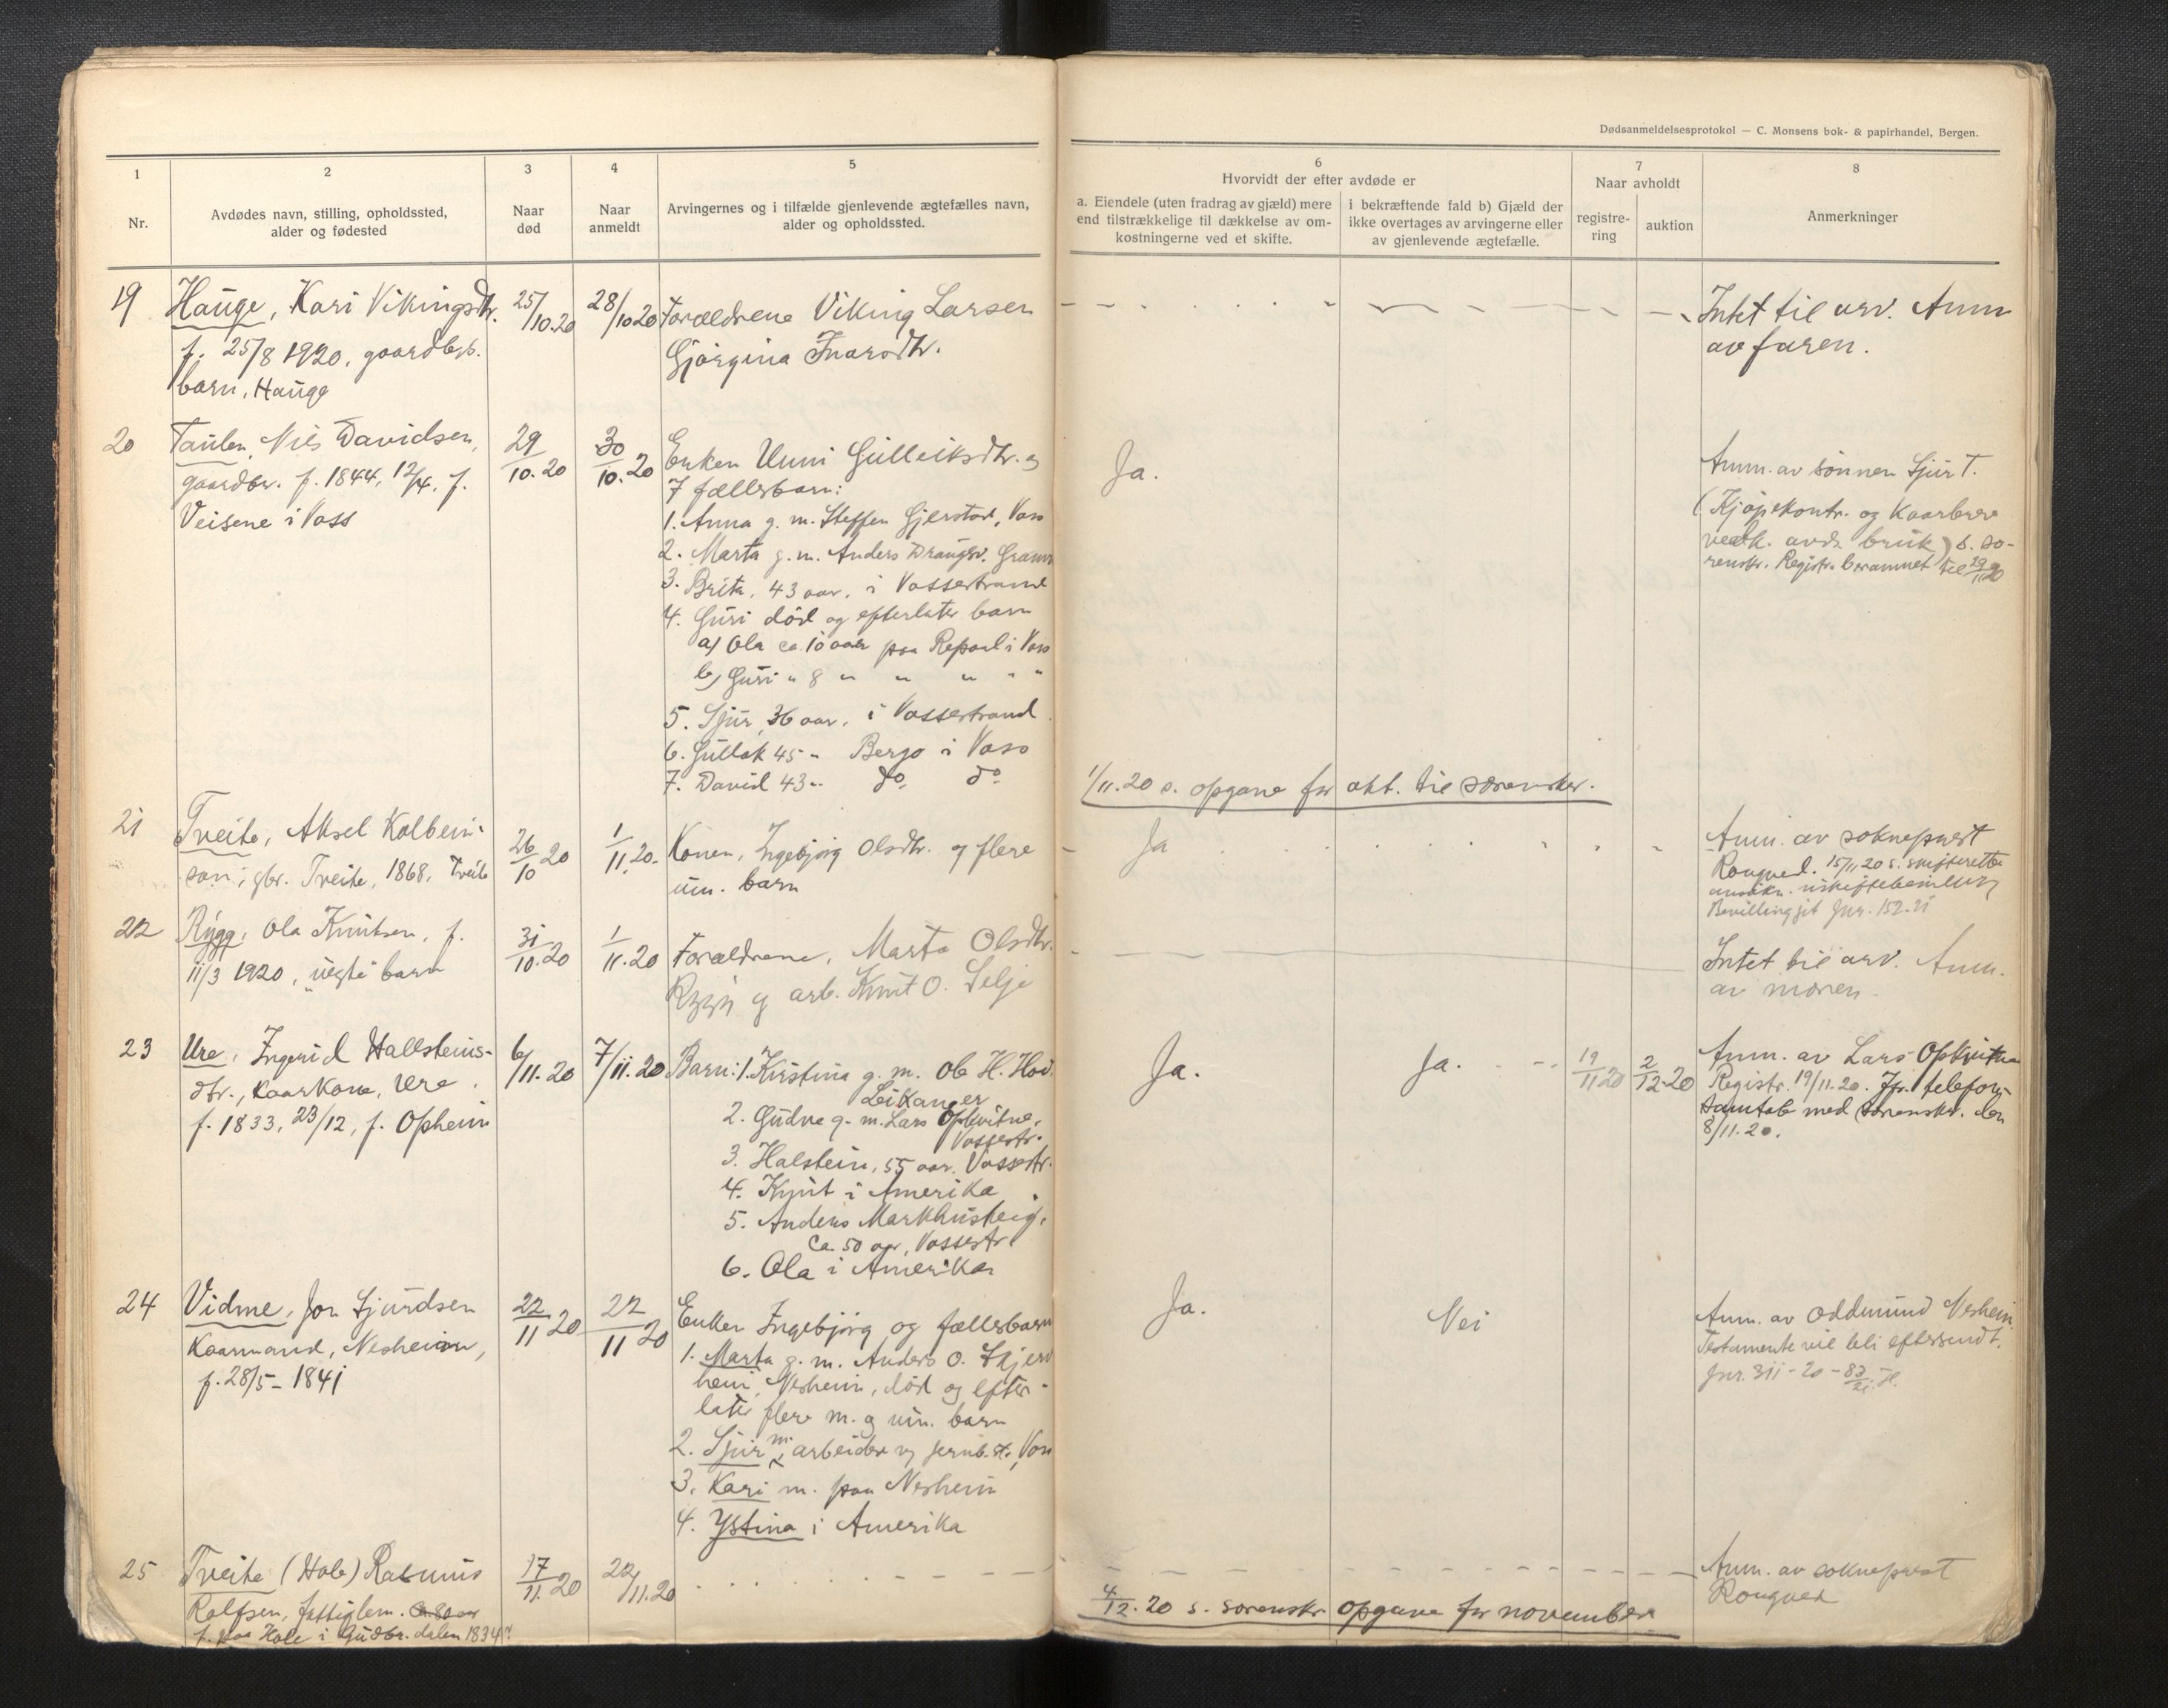 Dødsanmeldelsesprotokol — C. Monsens bok- & papirhandel, Bergen.
1
Nr.
2
Avdødes navn, stilling, opholdssted,
alder og fødested
3
Naar
død
4
Naar
anmeldt
5
Arvingernes og i tilfælde gjenlevende ægtefælles navn,
alder og opholdssted.
6
Hvorvidt der efter avdøde er
a. Eiendele (uten fradrag av gjæld) mere
end tilstrækkelige til dækkelse av om-
kostningerne ved et skifte.
i bekræftende fald b) Gjæld der
ikke overtages av arvingerne eller
av gjenlevende ægtefælle.
7
Naar avholdt
registre-
ring
auktion
8
Anmerkninger
19
Hauge, Kari Vikingsdtr.
f. 25/8 1920, gaardbr.
barn, Hauge
25/10.20
28/10 20
Forældrene Viking Larsen
Gjørgina Ivarsdtr.
Intet til arv. Anm
av faren.
20
Taulen, Nils Davidsen,
gaardbr. f. 1844, 12/4, f.
Veisene i Voss
29/10.20
30/10.20
Enken Unni Gulleiksdtr. og
7 fællesbarn:
1. Anna g. m. Steffen Gjerstad, Voss
2. Marta g. m. Anders Draugsv. Granv
3. Brita, 43 aar, i Vossestrand
4. Guri død og efterlater barn
a) Ola ca. 10 aar paa Repaal i Voss
b) Guri " 8 " " " " "
5. Sjur, 36 aar, i Vossestrand
6. Gullak 45 " Bergo i Voss
7. David 43 " do do
Ja.
Anm. av sønnen Sjur T.
(Kjøpekontr. og Kaarbrev
vedk. avd. bruk) s. so-
renskr. Registr. berammet til 29/11 20
1/11.20 s. opgave for okt. til sorenskr.
21
Tveite, Aksel Kolbein-
son, gbr. Tveite, 1868, Tveite
26/10 20
1/11.20.
Konen, Ingebjørg Olsdtr. og flere
um. barn
Ja
Anm. av sokneprest
Rongved. 15/11 20 s. skifteretten
ansøkn. uskiftebevilling
Bevilling git Jnr. 152-21
22
Rygg, Ola Knutsen, f.
11/3 1920, "uegte" barn
31/10.20
1/11.20
Forældrene, Marta Olsdtr.
Rygg og arb. Knut O. Selje
Intet til arv. Anm.
av moren.
23
Ure, Ingerid Hallsteins-
dtr., Kaarkone, Ure.
f. 1833, 23/12, f. Opheim
6/11.20
7/11.20
Barn: 1. Kristina g. m. Ole H. Hov.
Leikanger
2. Gudve g. m. Lars Opkvitne,
Vossestr.
3. Halstein, 55 aar. Vossestr.
4. Knut i Amerika
5. Anders Markhusteig,
Ca. 50 aar, Vossestr.
6. Ola i Amerika
Ja.
Ja.
19/11 20
2/12.20
Anm. av Lars Opkvitne
Registr. 19/11.20. Jfr. telefon-
samtale med sorenskr. den
8/11.20.
24
Vidme, Jon Sjurdsen
Kaarmand, Nesheim,
f. 28/5 - 1841
22/11 20
22/11 20
Enken Ingebjørg og fællesbarn
1. Marta g. m. Anders O. Skjerv
heim, Nesheim, død og efter-
later flere m. og um. barn
2. Sjur m. arbeider v. jernb. st., Voss
3. Kari m. paa Nesheim
4. Ystina i Amerika
Ja.
Nei
Anm. av Oddmund Nesheim
Testamente vil bli eftersendt.
Jnr. 311-20-83/21.
25
Tveite (Hole) Rasmus
Rolfsen, fattiglem. Ca. 80 aar
f. paa Hole i Gudbr. dalen 1834?
17/11 20
22/11.20
Anm. av sokneprest
Rongved
4/12.20 s. sorenskr. opgave for november